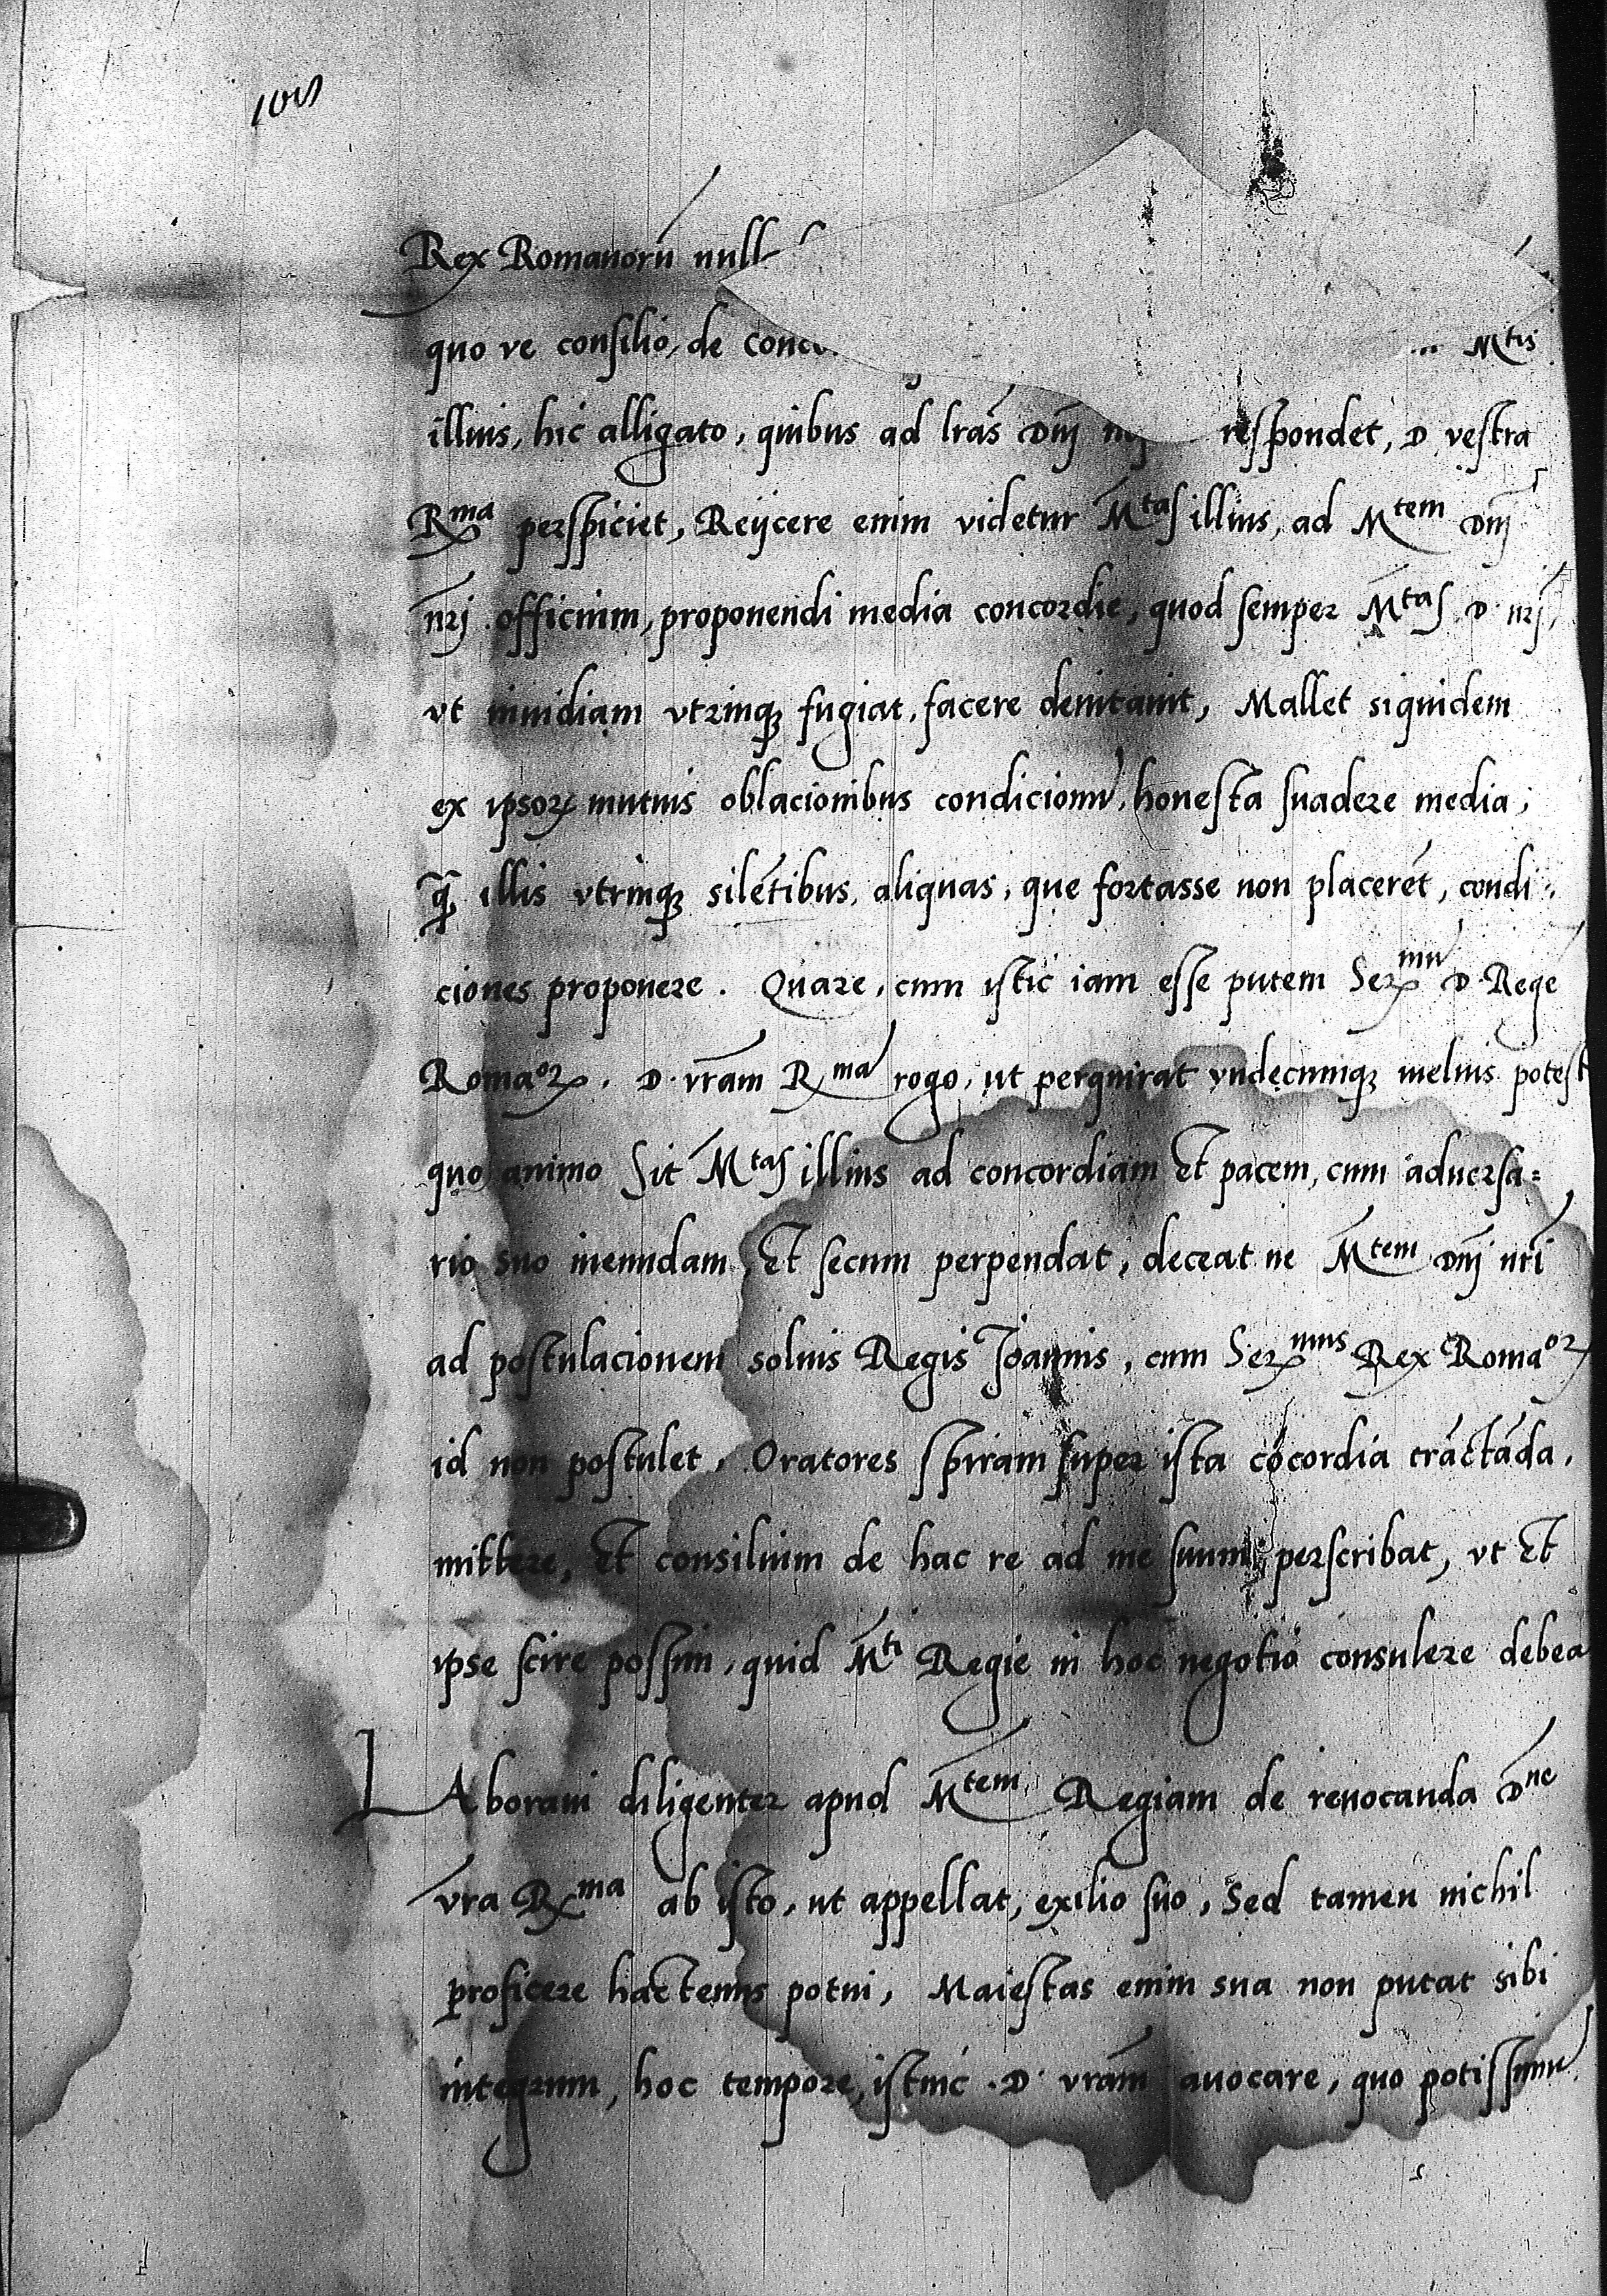 Rex Romanorū null
quo ve consilio, de conco ... Mtis
illius, hic alligato, quibus ad lrās Dnj respondet, D vestra
Rma perspiciet, Reijcere enim videtur Mtas illius, ad Mtem Dnj
nrj officium, proponendi media concordie, quod semper Mtas D. nrj,
vt inuidiam vtrinqꝫ fugiat, facere deuitauit, Mallet siquidem
ex ipsoꝝ mutuis oblacionibus condicionū, honesta suadere media,
q̄ꝫ illis vtrinqꝫ silētibus, aliquas, que fortasse non placerēt, condi-
ciones proponere. Quare, cum istic iam esse putem Sermū D. Regē
Romaoꝝ. D. vrām Rma rogo, ut perquirat vndecumqꝫ melius potest
quo animo sit Mtas illius ad concordiam et pacem, cum aduersa=
rio suo ineundam Et secum perpendat, deceat ne Mtem Dnj nrī
ad postulacionem solius Regis Joannis, cum Sermus Rex Romaoꝝ
id non postulet, Oratores spiram super ista cōcordia tractāda,
mittere, Et consilium de hac re ad me suum perscribat, vt Et
ipse scire possim, quid Mti Regie in hoc negotio consulere debea
LAboraui diligenter apud Mtem Regiam de reuocanda Dne
vra Rma ab isto, ut appellat, exilio suo, Sed tamen nichil
proficere hactenus potui, Maiestas enim sua non putat sibi
integrum, hoc tempore, istinc D. vrām auocare, quo potissimū